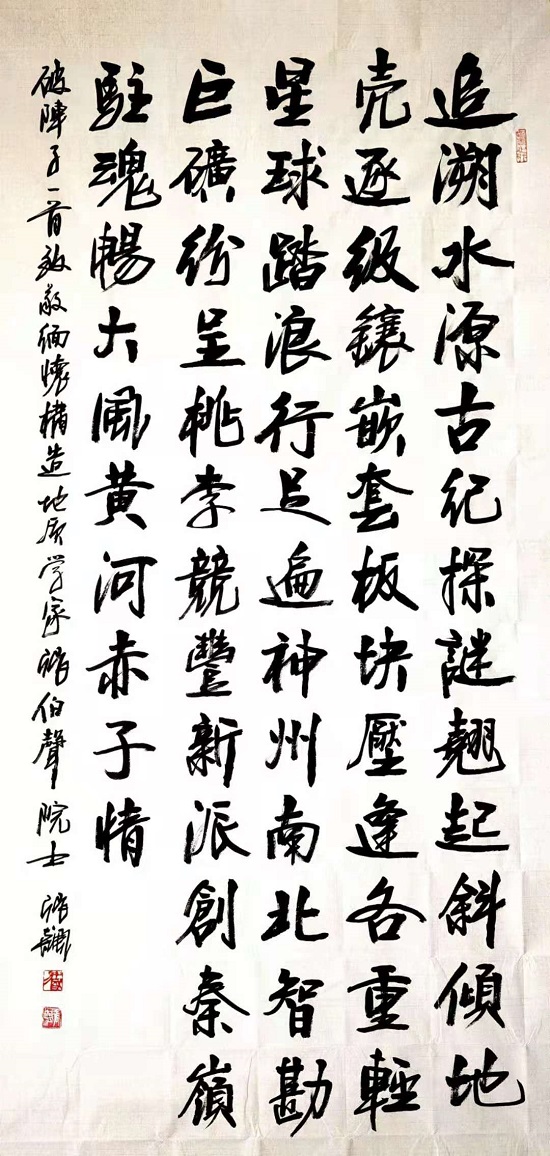 追溯水源古紀探謎翹起斜傾地
壳逐级鑲嵌套板块壓逢各重輕
星球踏浪行足遍神州南北智勘
巨礦纷呈桃李競豐新派創秦嶺
駐魂暢大風黄河赤子情
破陣子一首致敬缅懷構造地质学家張伯聲院士